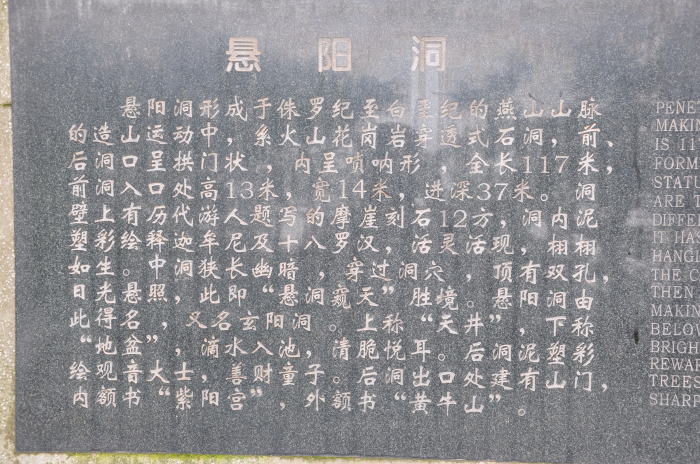 悬阳洞
悬阳洞形成于侏罗纪至白垩纪的燕山山脉
的造山运动中，系火山花岗岩穿透式石洞，前、
后洞口呈拱门状，内呈喷呐形，全长117米，
前洞入口处高13米，宽14米，进深37米。洞
壁上有历代游人题写的摩崖刻石12方，洞内泥
塑彩绘释迦牟尼及十八罗汉，活灵活现，栩栩
如生。中洞狭长幽暗，穿过洞穴，顶有双孔，
日光悬照，此即“悬洞窥天”胜境。悬阳洞由
此得名，又名玄阳洞。上称“天井”，下称
“地盆”，滴水入池，清脆悦耳。后洞泥塑彩
绘观音大士，善财童子。后洞出口处建有山门，
内额书“紫阳宫”，外额书“黄牛山”。
PENE
MAKIN
IS 11
FORM
STATU
ARE T
DIFFE
IT HAS
HANGI
THE C
THEN
MAKIN
BELO
BRIGH
REWAR
TREES
SHARP